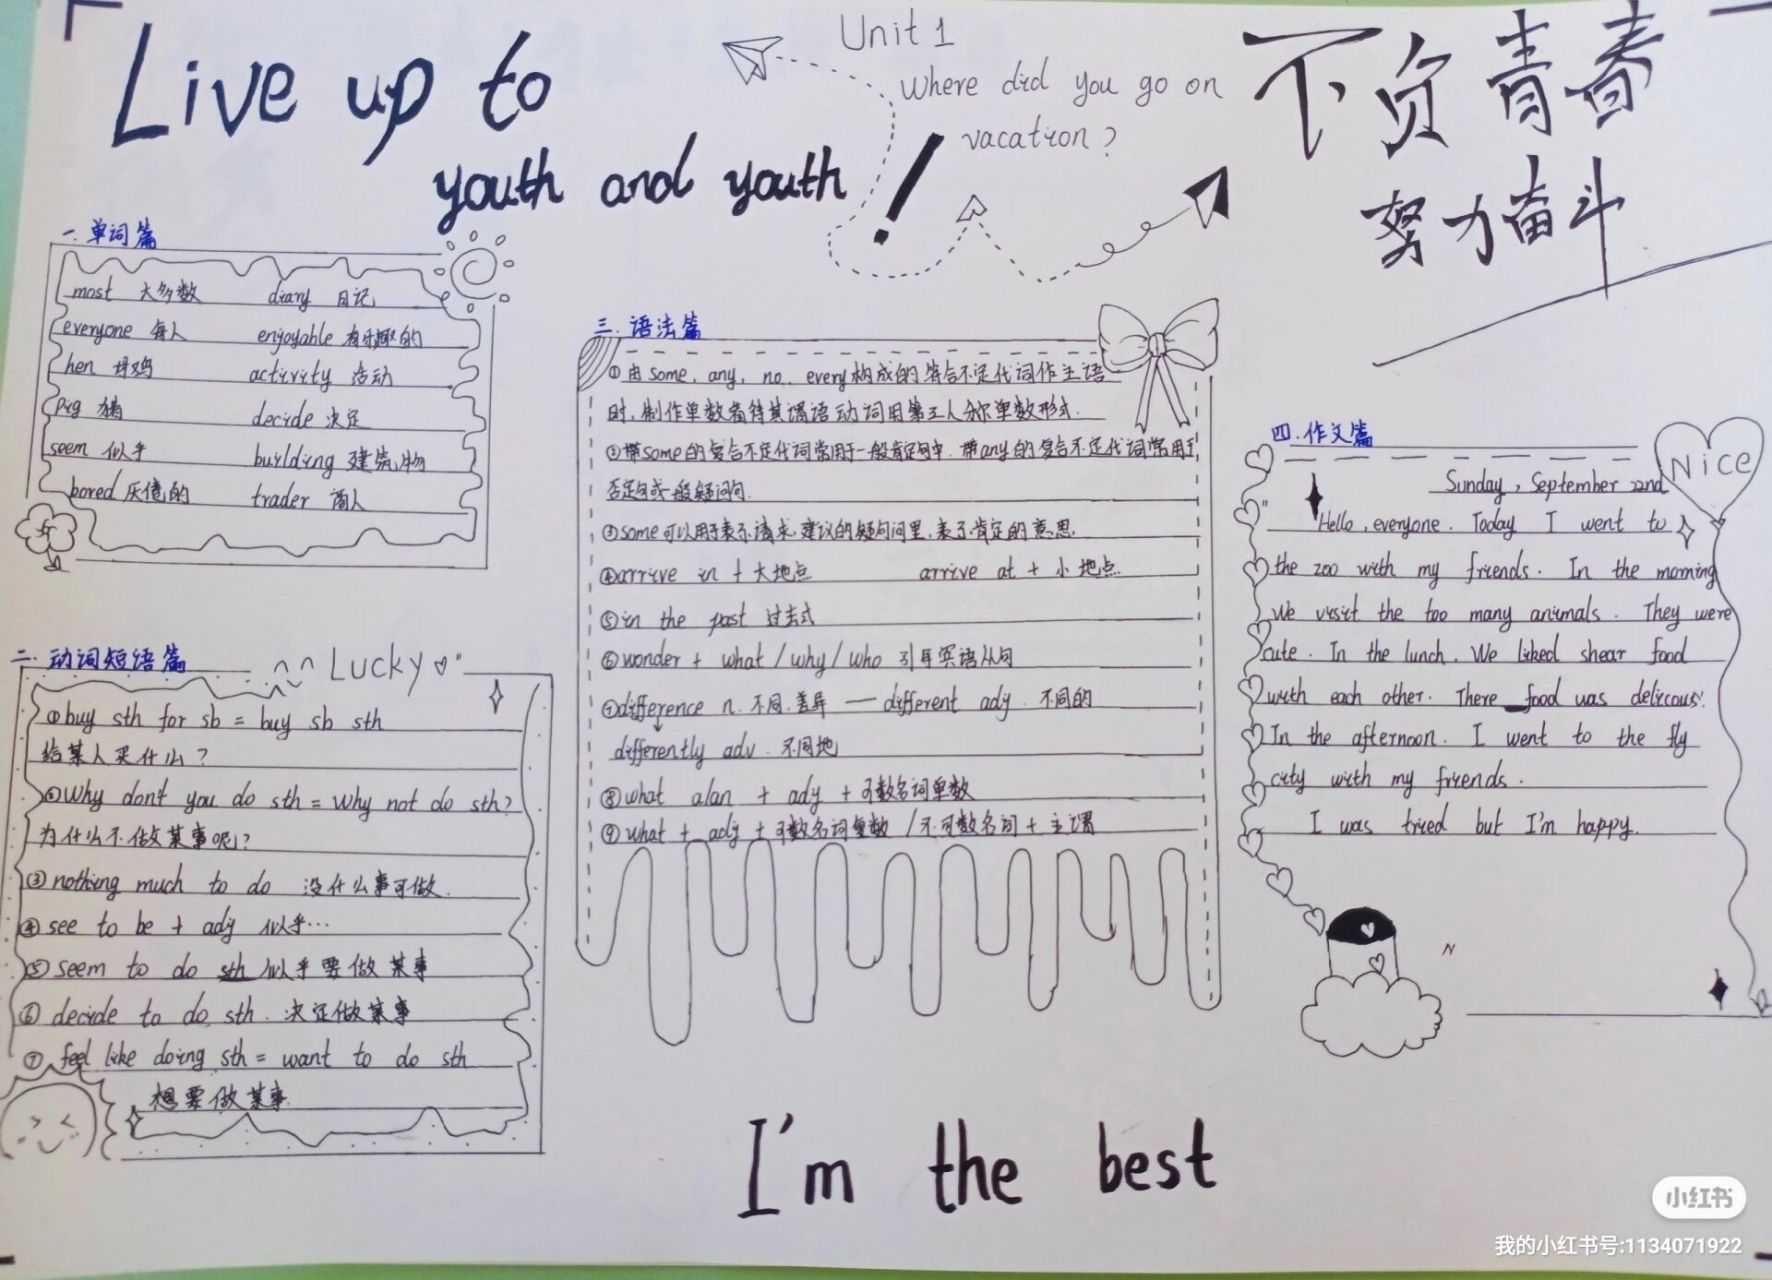 Live up to
youth and youth
!
Unit 1
Where did you go on
vacation?
不负青春
努力奋斗
一.单词篇
most 大多数 diary 日记
everyone 每人 enjoyable 有乐趣的
hen 母鸡 activity 活动
pig 猪 decide 决定
seem 似乎 building 建筑物
bored 厌倦的 trader 商人
二.动词短语篇
Lucky
①buy sth for sb = buy sb sth
给某人买什么?
②Why don't you do sth = Why not do sth?
为什么不做某事呢?
③nothing much to do 没什么事可做.
④see to be + adj 似乎…
⑤seem to do sth 似乎要做某事
⑥decide to do sth. 决定做某事
⑦feel like doing sth = want to do sth
想要做某事.
三.语法篇
①由some, any, no, every构成的复合不定代词作主语
时,制作单数看待其谓语动词用第三人称单数形式.
②带some的复合不定代词常用于一般肯定句中.带any的复合不定代词常用于
否定句或一般疑问句.
③some可以用于表示请求,建议的疑问句里,表示肯定的意思.
④arrive in + 大地点 arrive at + 小地点.
⑤in the past 过去式
⑥wonder + what / why / who 引导宾语从句
⑦difference n. 不同.差异 — different adj. 不同的
differently adv. 不同地
⑧what alan + adj + 可数名词单数
⑨what + adj + 可数名词复数 / 不可数名词 + 主谓
四.作文篇
Nice
Sunday, September 22nd
Hello, everyone. Today I went to
the zoo with my friends. In the morning
We visit the too many animals. They were
cute. In the lunch. We liked shear food
with each other. There food was delicous.
In the afternoon. I went to the fly
city with my friends.
I was tried but I'm happy.
N
I'm the best
小红书
我的小红书号:1134071922